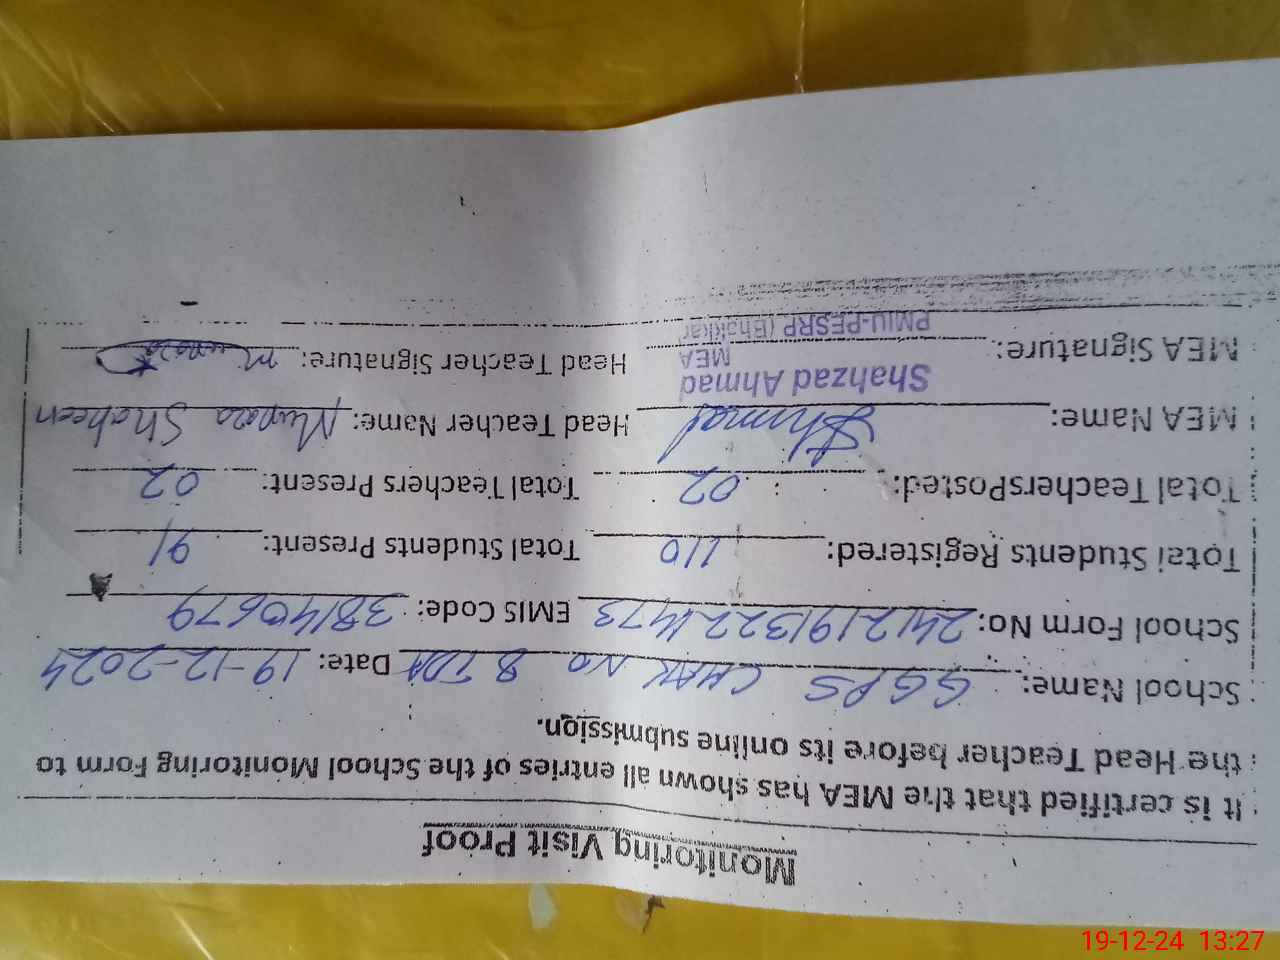 Monitoring Visit Proof
It is certified that the MEA has shown all entries of the School Monitoring Form to
the Head Teacher before its online submission.
School Name: GGPS CHAK NO 8 TDA Date: 19-12-2024
School Form No: 24121913221473 EMIS Code: 38140679
Total Students Registered: 110 Total Students Present: 91
Total TeachersPosted: 02 Total Teachers Present: 02
MEA Name: Head Teacher Name: Shaheen
Shahzad Ahmad
MEA
MEA Signature: Head Teacher Signature:
PMIU-PESRP (Bhakkar
19-12-24 13:27